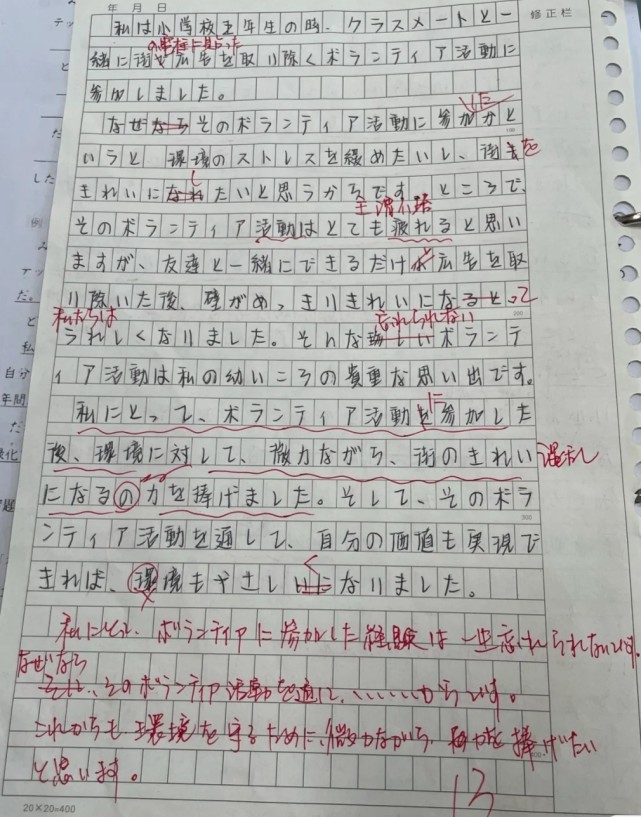 年 月 日
修正栏
私は小学校五年生の時、クラスメートと一
の電柱に貼った
緒に街や広告を取り除くボランティア活動に
参加しました。
した
なぜならそのボランティア活動に参加かと
いうと 環境のストレスを緩めたいし、街を
きれいになれたいと思うからです。ところで、
し
そのボランティア活動はとても疲れると思い
ますが、友達と一緒にできるだけ広告を取
と
り除いた後、壁がめっきりきれいになると
って
私たちは
忘れられない
うれしくなりました。そんな難しいボランテ
ィア活動は私の幼いころの貴重な思い出です。
私にとって、ボランティア活動を参加した
に
後、環境に対して、微力ながら、街のきれい
になるの力を捧げました。そして、そのボラ
ンティア活動を通して、自分の価値も実現で
きれば、環境もやさしいになりました。
く
私にとって、ボランティアに参加した経験は一生忘れられないです。
なぜなら
そのボランティア活動を通して、……からです。
これからも環境を守るために、微力ながら、
捧げたい
と思います。
13
20×20=400